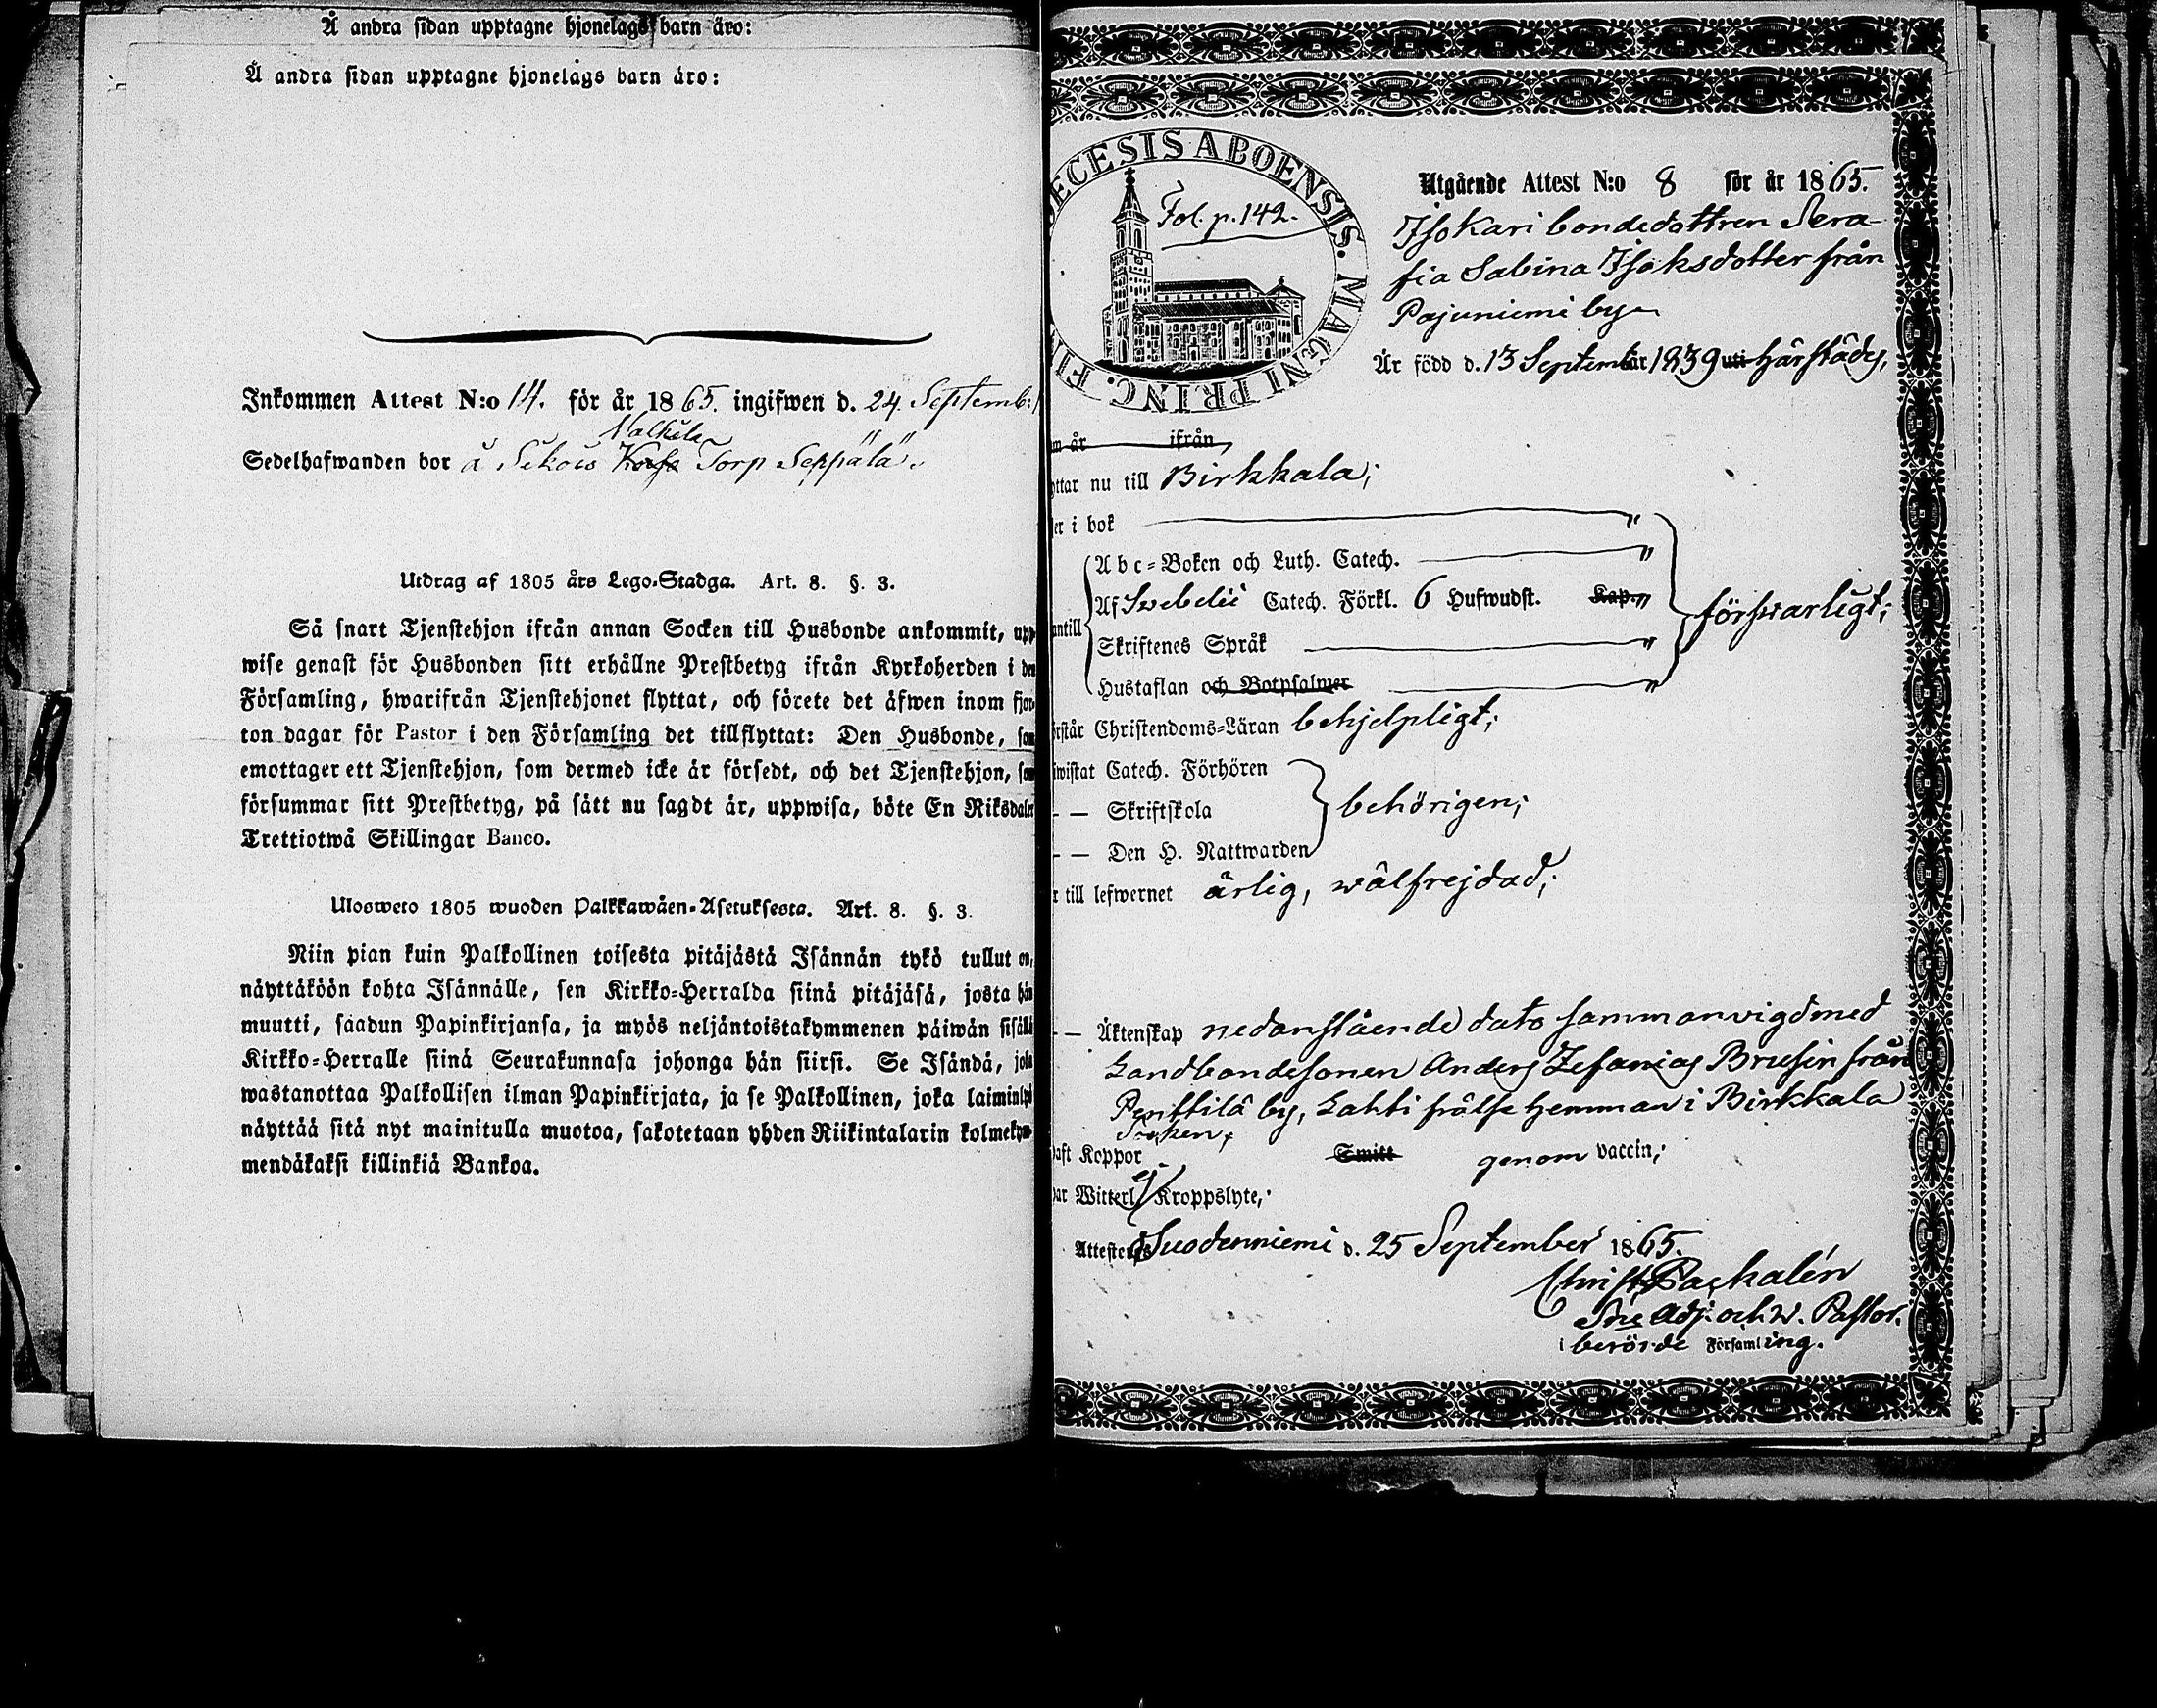 Å andra sidan upptagne hjonelags barn äro:
Å andra sidan upptagne hjonelags barn äro:
Inkommen Attest N:o 14. för år 1865. ingifwen d. 24. Septemb:
Nalkila
Sedelhafwanden bor å Torp Seppälä.
Utdrag af 1805 års Lego-Stadga. Art. 8. §. 3.
Så snart Tjenstehjon ifrån annan Socken till Husbonde ankommit, upp-
wise genast för Husbonden sitt erhållne Prestbetyg ifrån Kyrkoherden i den
Församling, hwarifrån Tjenstehjonet flyttat, och förete det äfwen inom fjor-
ton dagar för Pastor i den Församling det tillflyttat: Den Husbonde, som
emottager ett Tjenstehjon, som dermed icke är försedt, och det Tjenstehjon, som
försummar sitt Prestbetyg, på sätt nu sagdt är, uppwisa, böte En Riksdaler
Trettiotwå Skillingar Banco.
Ulosweto 1805 wuoden Palkkawäen-Asetuksesta. Art. 8. §. 3.
Niin pian kuin Palkollinen toisesta pitäjästä Isännän tykö tullut on,
näyttäköön kohta Isännälle, sen Kirkko-Herralda siinä pitäjäsä, josta hän
muutti, saadun Papinkirjansa, ja myös neljäntoistakymmenen päiwän sisällä
Kirkko-Herralle siinä Seurakunnasa johonga hän siirsi. Se Isändä, joka
wastanottaa Palkollisen ilman Papinkirjata, ja se Palkollinen, joka laiminlyö
näyttää sitä nyt mainitulla muotoa, sakotetaan yhden Riikintalarin kolmekym-
mendäkaksi killinkiä Bankoa.
ECESIS ABOENSIS. MAGNI PRINC. FI
Fol. p. 142.
Utgående Attest N:o 8 för år 1865.
Isokari bondedottren Sera-
fia Sabina Isaksdotter från
Pajuniemi by
Är född d. 13 September 1839 uti härstädes,
m år ifrån
ttar nu till Birkkala;
er i bok
Abc-Boken och Luth. Catech.
Af Svebelii Catech. Förkl. 6 Hufwudst. Kap.
antill
försvarligt;
Skriftenes Språk
Hustaflan och Botpsalmer
rstår Christendoms-Läran behjelpligt;
iwistat Catech. Förhören
— Skriftskola
behörigen;
— Den H. Nattwarden
r till lefwernet ärlig, wälfrejdad;
— Äktenskap nedanstående dato sammanvigd med
Landbondesonen Anders Zefanias Brusin från
Penttilä by, Lahti frälse hemman i Birkkala
Socken,
haft Koppor Smitt genom vaccin;
har Witterl. ej Kroppslyte;
Attesteras Suodenniemi d. 25 September 1865.
Christ. Paskalén
Sne Adj. och w. Pastor.
i berörde Församling.